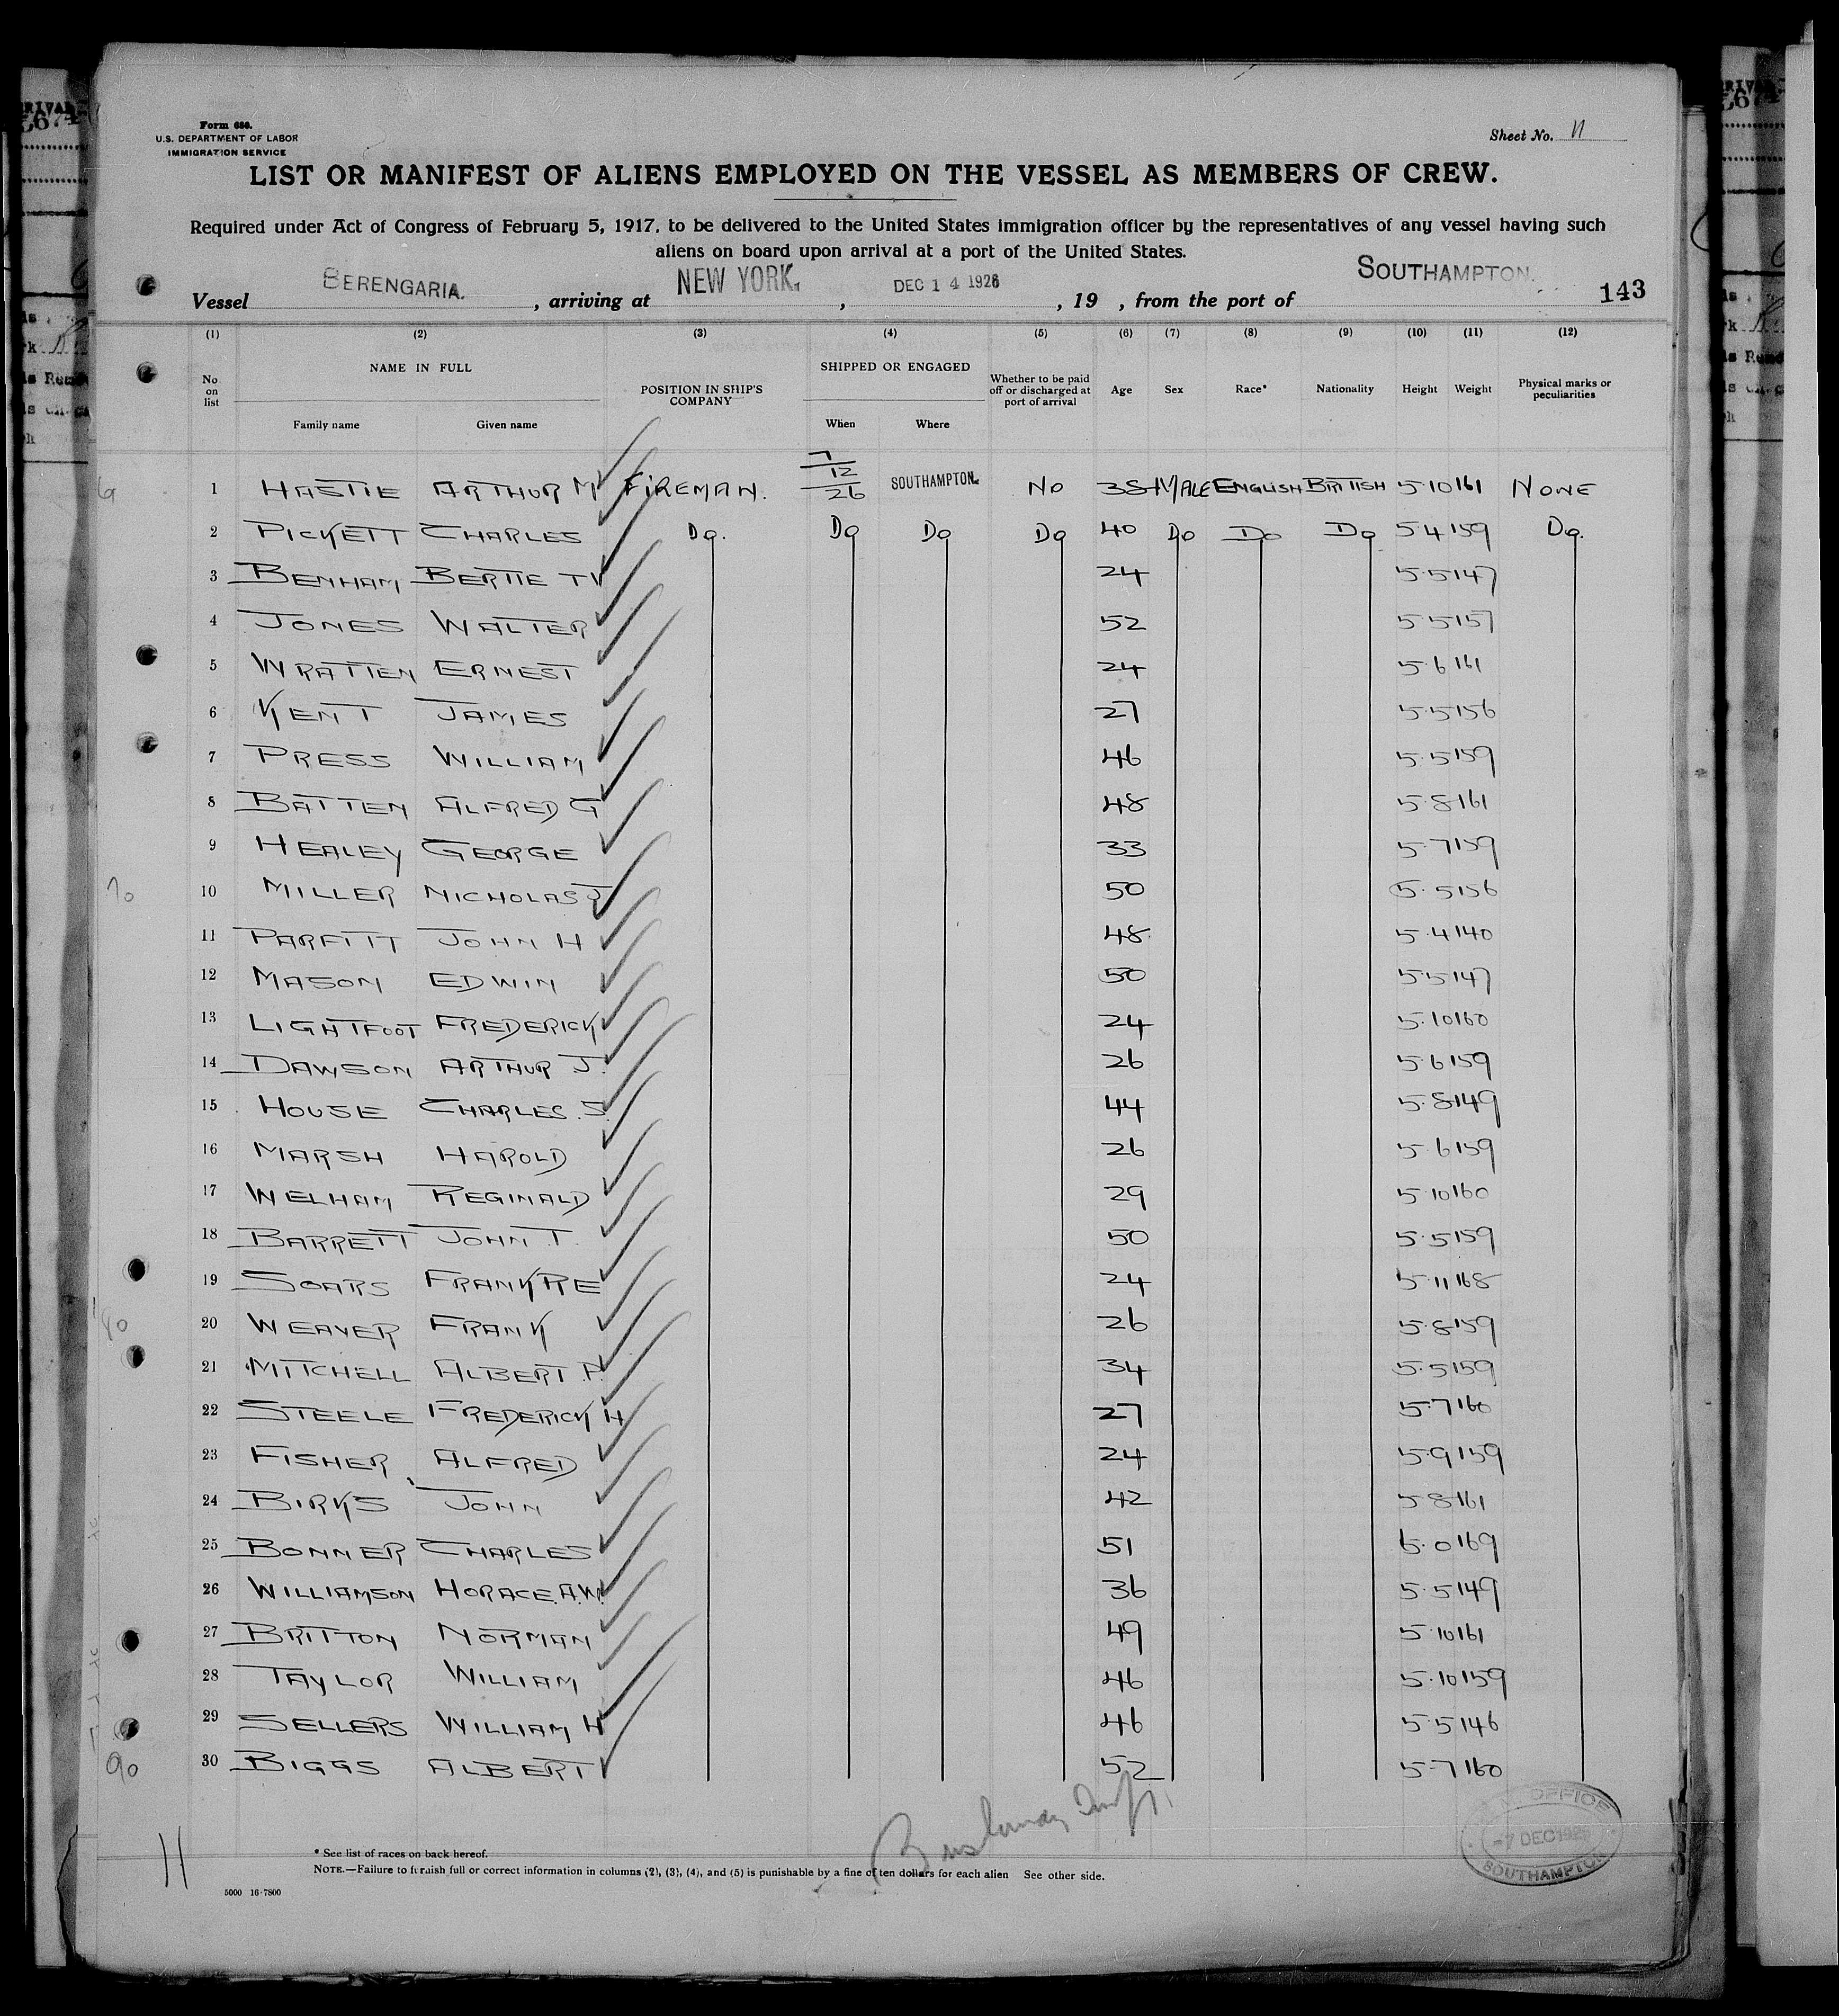 Form 680.
U.S. DEPARTMENT OF LABOR
IMMIGRATION SERVICE
Sheet No. 11
LIST OR MANIFEST OF ALIENS EMPLOYED ON THE VESSEL AS MEMBERS OF CREW.
Required under Act of Congress of February 5, 1917, to be delivered to the United States immigration officer by the representatives of any vessel having such
aliens on board upon arrival at a port of the United States.
Vessel BERENGARIA. , arriving at NEW YORK. , DEC 14 1926 , 19 , from the port of SOUTHAMPTON. 143
(1) (2) (3) (4) (5) (6) (7) (8) (9) (10) (11) (12)
No on list NAME IN FULL Family name Given name POSITION IN SHIP'S COMPANY SHIPPED OR ENGAGED When Where Whether to be paid off or discharged at port of arrival Age Sex Race* Nationality Height Weight Physical marks or peculiarities
1 HASTIE ARTHUR M FIREMAN. 7/12/26 SOUTHAMPTON. NO 38 MALE ENGLISH BRITISH 5·10 161 NONE
2 PICKETT CHARLES Do. Do Do Do 40 Do Do Do 5·4 159 Do.
3 BENHAM BERTIE 24 5·5 147
4 JONES WALTER 52 5·5 157
5 WRATTEN ERNEST 24 5·6 161
6 KENT JAMES 27 5·5 156
7 PRESS WILLIAM 46 5·5 159
8 BATTEN ALFRED G 48 5·8 161
9 HEALEY GEORGE 33 5·7 159
70
10 MILLER NICHOLAS J 50 5·5 156
11 PARFITT JOHN H 48 5·4 140
12 MASON EDWIN 50 5·5 147
13 LIGHTFOOT FREDERICK 24 5·10 160
14 DAWSON ARTHUR J. 26 5·6 159
15 HOUSE CHARLES. S 44 5·8 149
16 MARSH HAROLD 26 5·6 159
17 WELHAM REGINALD 29 5·10 160
18 BARRETT JOHN T. 50 5·5 159
19 SOARS FRANK R E 24 5·11 168
80
20 WEAVER FRANK 26 5·8 159
21 MITCHELL ALBERT P. 34 5·5 159
22 STEELE FREDERICK H 27 5·7 160
23 FISHER ALFRED 24 5·9 159
24 BIRKS JOHN 42 5·8 161
25 BONNER CHARLES 51 6·0 169
26 WILLIAMSON HORACE. A.W. 36 5·5 149
27 BRITTON NORMAN 49 5·10 161
28 TAYLOR WILLIAM 46 5·10 159
29 SELLERS WILLIAM H 46 5·5 146
90
30 BIGGS ALBERT 52 5·7 160
OFFICE
-7 DEC 1926
SOUTHAMPTON
11
* See list of races on back hereof.
NOTE.—Failure to furnish full or correct information in columns (2), (3), (4), and (5) is punishable by a fine of ten dollars for each alien See other side.
5000 16-7800